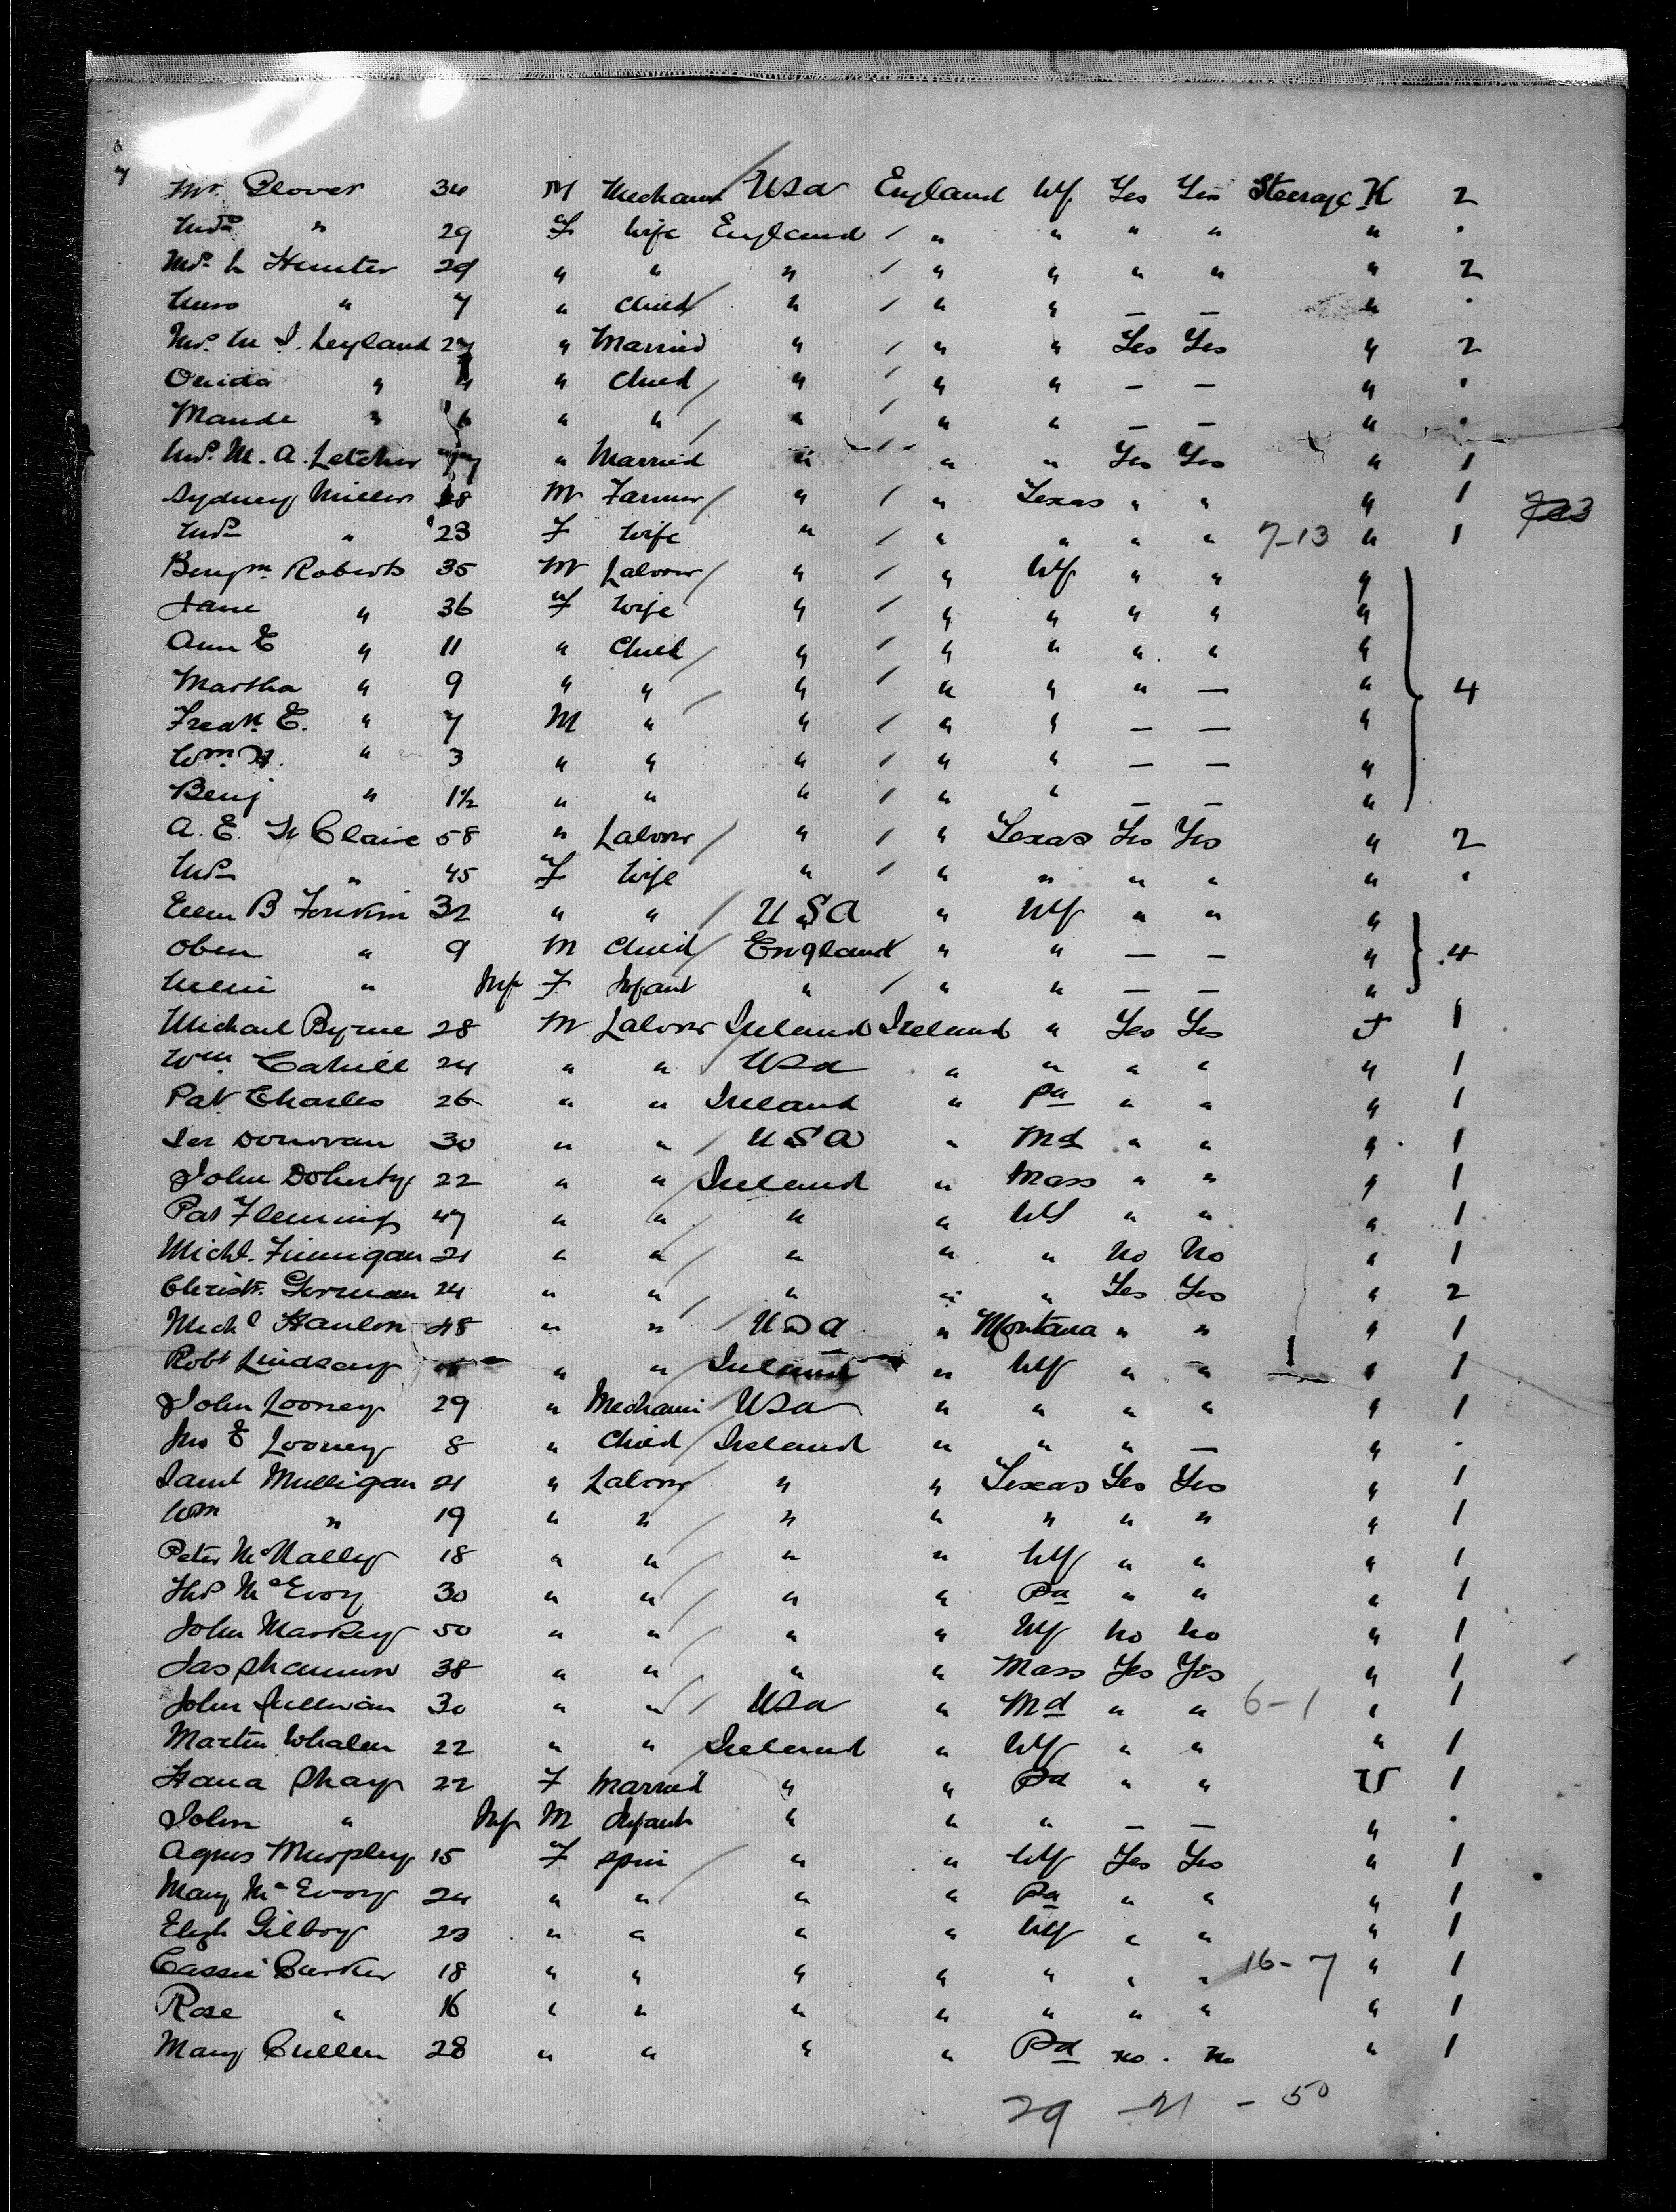 Mr. Glover 34 M Mechanic USA England NY Yes Yes Steerage K 2
Mrs " 29 F Wife England / " " " " " .
Mrs. L Hunter 29 " " " / " " " " " 2
Miss " 7 " Child " / " " — — " .
Mrs. M I. Leyland 27 " Married " / " " Yes Yes " 2
Ouida " 4 " Child / " / " " — — " .
Maude " " " / " / " " — — " .
Mrs. M. A. Letcher " Married " / " " Yes Yes " 1
Sydney Miller 28 M Farmer / " / " Texas " " " 1
Mrs " 23 F Wife " / " " " " 7-13 " 1
Benjm. Roberts 35 M Laborer / " / " NY " " "
Jane " 36 F Wife " / " " " " "
Ann E " 11 " Child / " / " " " " "
Martha " 9 " " / " / " " " — " 4
Fredk. E. " 7 M " " / " " — — "
Wm. H. " 3 " " " / " " — — "
Benj " 1½ " " " / " " — — "
A. E. St Claire 58 " Laborer / " / " Texas Yes Yes " 2
Mrs " 45 F Wife " / " " " " " .
Ellen B Jenkin 32 " " / USA " NY " " "
" 9 M Child / England " " — — " 4
" Inf F Infant " / " " — — "
Michael Byrne 28 M Laborer Ireland Ireland " Yes Yes J 1
Wm Cahill 24 " " USA " " " " " 1
Pat Charles 26 " " Ireland " Pa " " " 1
Jer Donovan 30 " " / USA " Md " " " 1
John Doherty 22 " " / Ireland " Mass " " " 1
Pat Fleming 47 " " / " " NY " " " 1
Michl. Finnigan 21 " " / " " " No No " 1
Christr. Gorman 24 " " / " " " Yes Yes " 2
Michl Hanlon 48 " " / USA " Montana " " " 1
Robt Lindsay " " / Ireland " NY " " " 1
John Looney 29 " Mechanic / USA " " " " " 1
Jno E Looney 8 " Child / Ireland " " " — " .
Saml Mulligan 21 " Laborer / " " Texas Yes Yes " 1
Wm " 19 " " / " " " " " " 1
Peter McNally 18 " " / " " NY " " " 1
Thos McEvoy 30 " " / " " Pa " " " 1
John Markey 50 " " / " " NY No No " 1
Jas Shannon 38 " " / " " Mass Yes Yes " 1
John Sullivan 30 " " / / USA " Md " " 6-1 " 1
Martin Whalen 22 " " Ireland " NY " " " 1
Hana Shay 22 F Married " " Pa " " U 1
John " Inf M Infant " " " — — " .
Agnes Murphy 15 F Spin / " " NY Yes Yes " 1
Mary McEvoy 24 " " / " " Pa " " " 1
Elizh Gilboy 23 " " " " NY " " " 1
Cassie 18 " " " " " " " 16-7 " 1
Rose " 16 " " " " " " " " 1
Mary Cullen 28 " " " " Pa no. no " 1
29 - 21 - 50